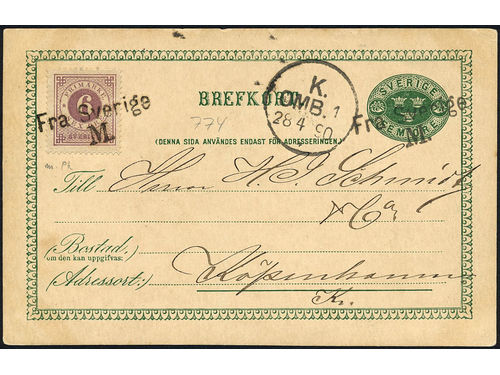 FRIMÄRKE
6
Fra Sverige
M.
774
BREFKORT
K.
OMB. 1
28 4 90
SVERIGE
FEM ÖRE
Fra Sverige
M.
(DENNA SIDA ANVÄNDES ENDAST FÖR ADRESSERINGEN.)
m. Pk
Till Herrer H. P. Schmidt
& Co,
(Bostad:
om den kan uppgifvas:)
(Adressort:) Köpenhamn
K.